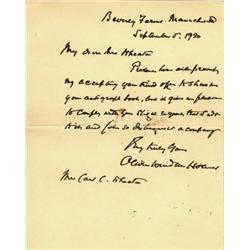 Beverly Farms. Massachusetts
September 5. 1920
My dear Mrs Wheaton
Please
my accepting your kind offer to share
your autograph book, but it gives me pleasure
to comply with your
and join so distinguished a company
Very truly yours
Oliver Wendell Holmes
Mrs Carl C. Wheaton